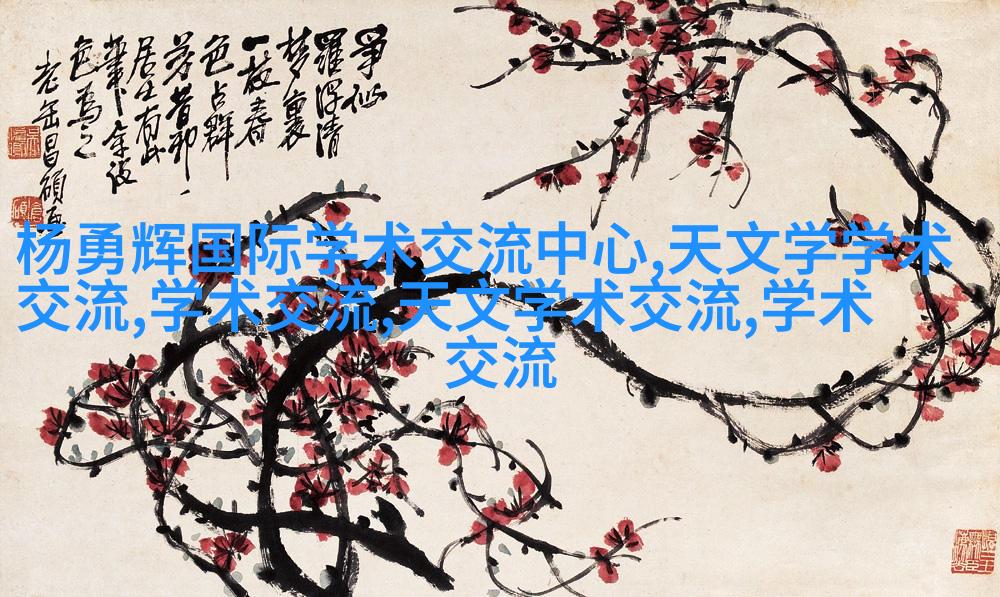 爭似
羅浮清
夢裏
一枝春
色占群
芳昔邪
居士有此
色為之
老缶昌碩
杨勇辉国际学术交流中心,天文学学术
交流,学术交流,天文学术交流,学术
交流